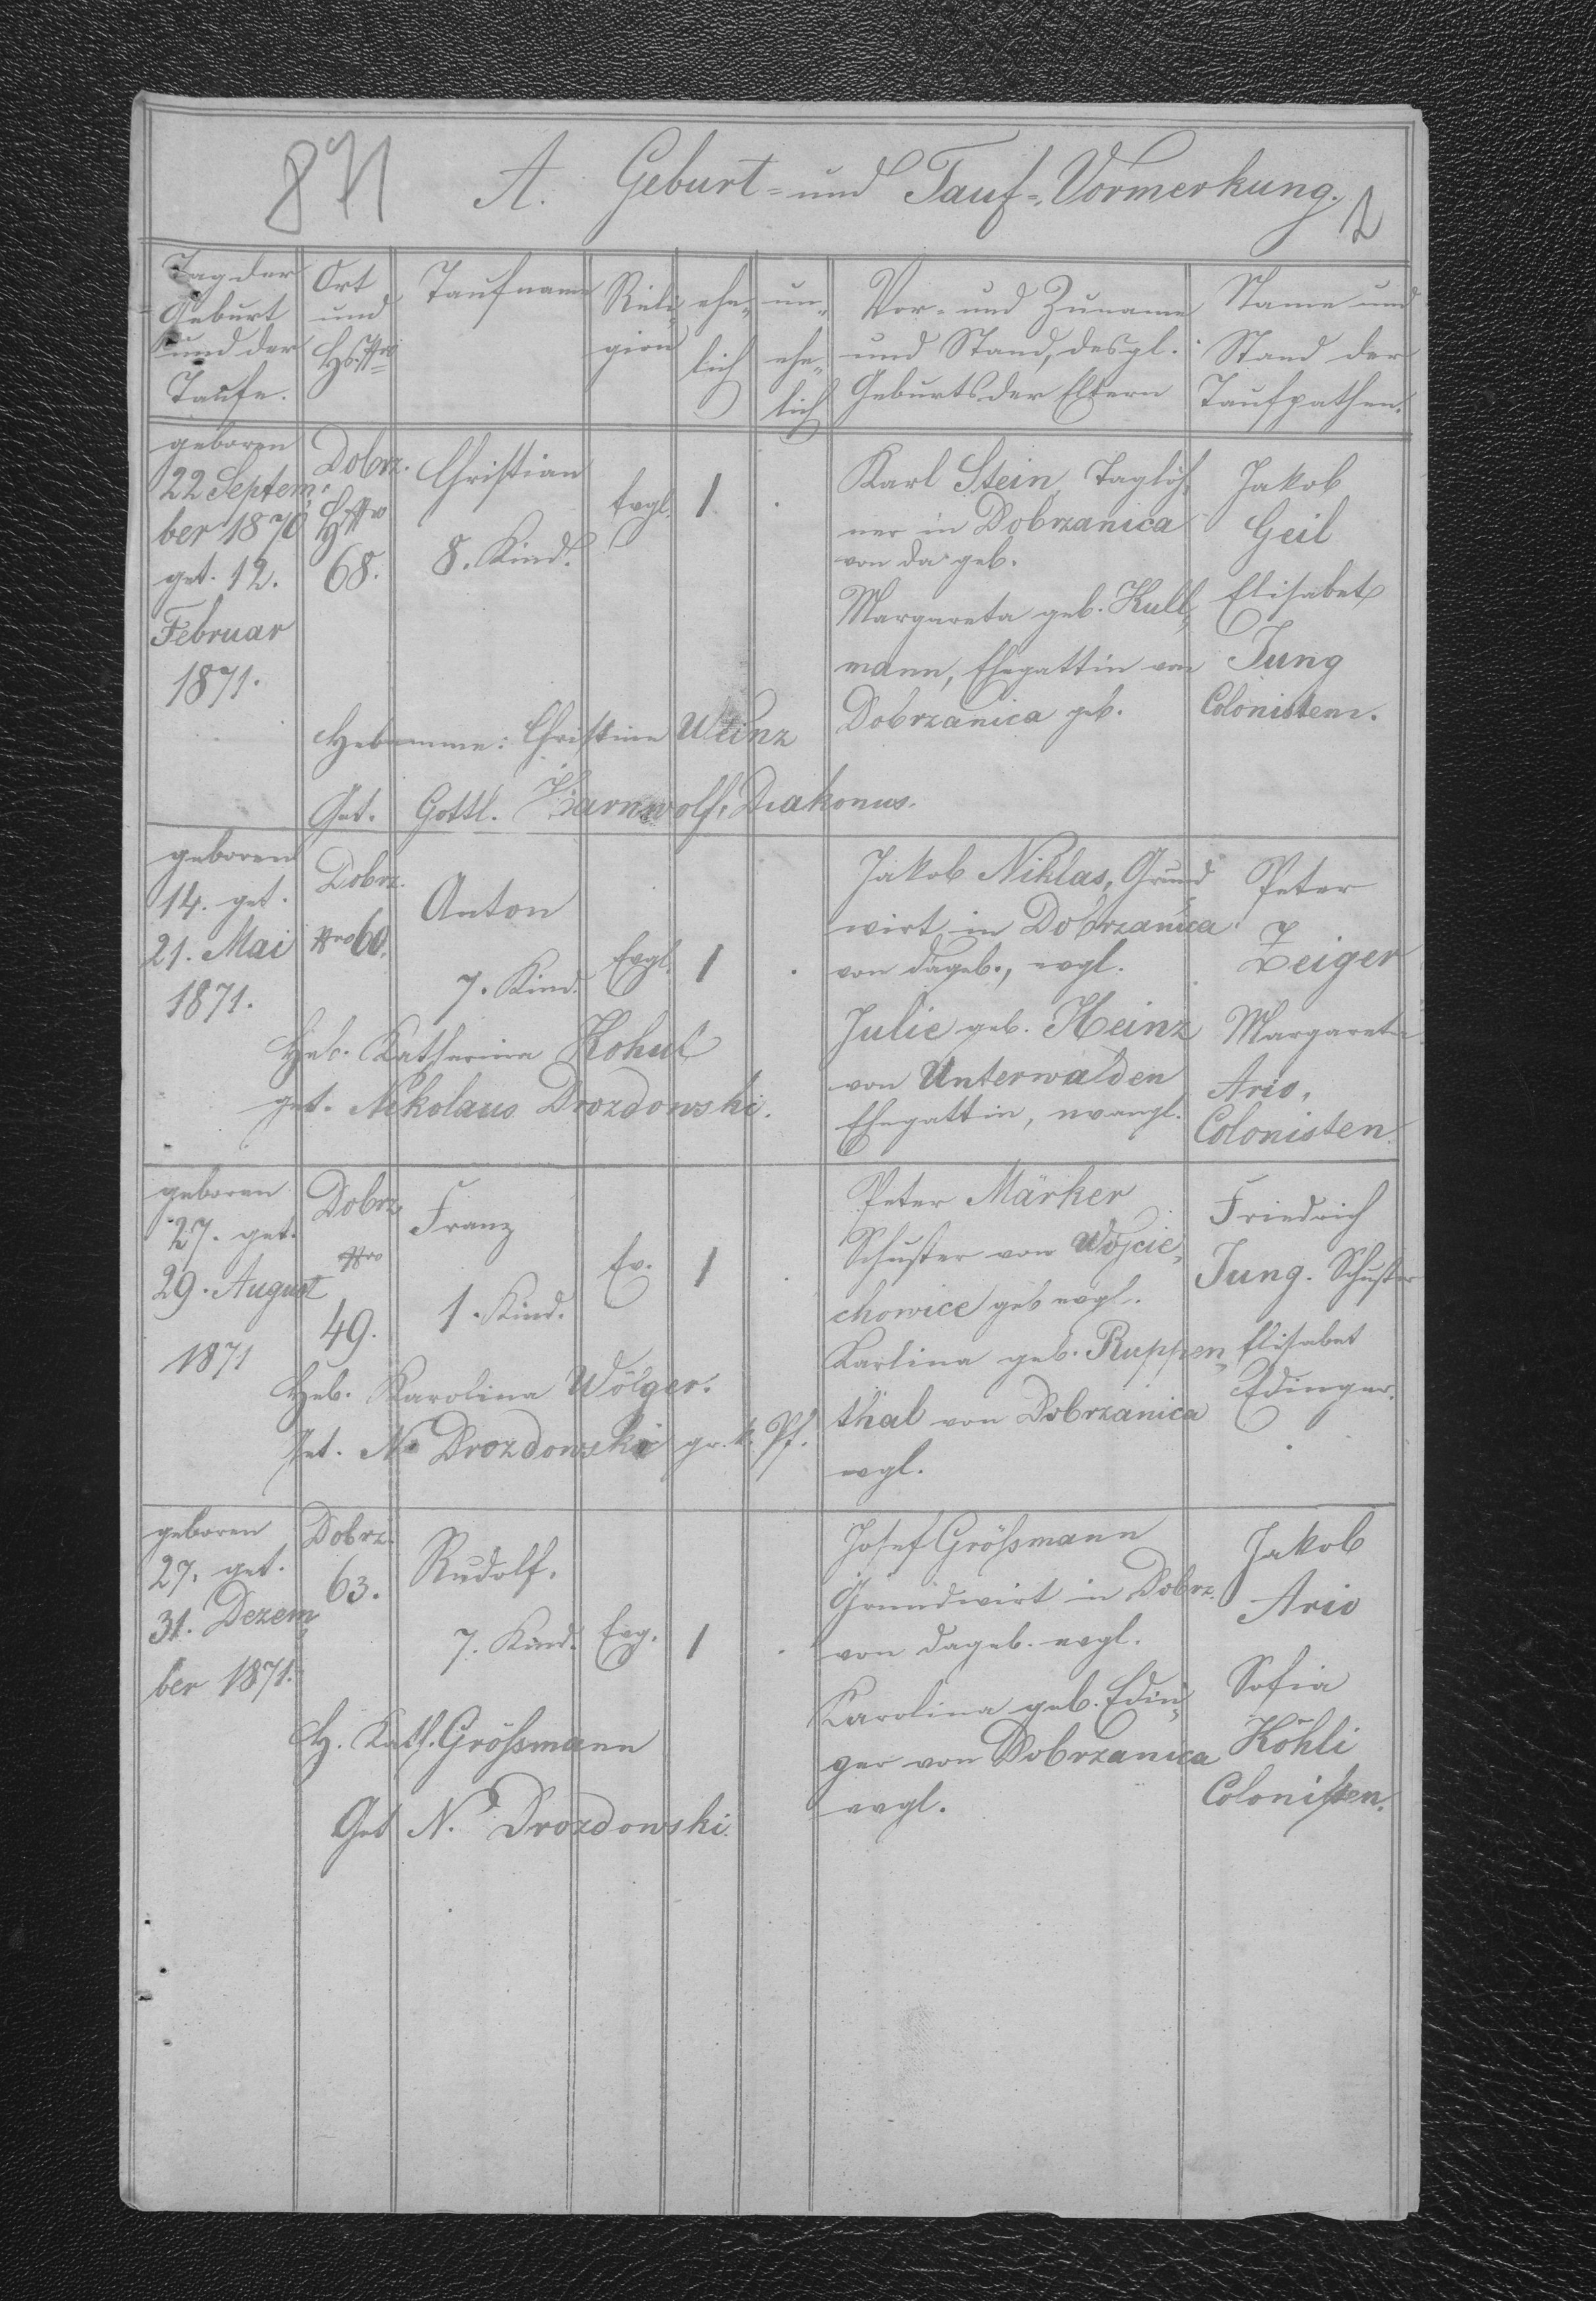 871 A. Geburt- und Tauf-Vormerkung. 2
Tag der
Geburt
und der
Taufe.
Ort
und
Hs.Nro
Taufname
Reli-
gion
ehe-
lich
un-
ehe-
lich
Vor- und Zuname
und Stand, desgl.
Geburts der Eltern
Name und
Stand der
Taufpathen.
geboren
22 Septem-
ber 1870
get. 12.
Februar
1871.
Dobrz.
HNro
68.
Christian
8. Kind.
Evgl.
1
Karl Stein, Taglöh-
ner in Dobrzanica
von da geb.
Margareta geb. Kull-
mann, Ehegattin von
Dobrzanica geb.
Jakob
Geil
Elisabet
Jung
Colonisten.
Hebamme: Christine Weinz
Get. Gottl. Harnwolf, Diakonus.
geboren
14. get.
21. Mai
1871.
Dobrz.
Nro 60.
Anton
7. Kind.
Evgl.
1
Jakob Niklas, Grund-
wirt in Dobrzanica
von da geb., evgl.
Julie geb. Heinz
von Unterwalden
Ehegattin, evangl.
Peter
Zeiger
Margareta
Ario,
Colonisten.
Heb. Katharina Kohul
get. Nikolaus Drozdowski.
geboren
27. get.
29. August
1871
Dobrz
Nro
49.
Franz
1. Kind.
Ev.
1
Peter Märker
Schuster von Wojcie-
chowice geb evgl.
Karlina geb. Ruppen-
thal von Dobrzanica
evgl.
Friedrich
Jung. Schuster
Elisabet
Edinger.
Heb. Karolina Wölger.
Get. N. Drozdowski gr. k. Pf.
geboren
27. get.
31. Dezem-
ber 1871.
Dobrz.
63.
Rudolf.
7. Kind.
Evg.
1
Josef Größmann
Grundwirt in Dobrz.
von da geb. evgl.
Karolina geb. Edin-
ger von Dobrzanica
evgl.
Jakob
Ario
Sofia
Köhli
Colonisten.
H. Kath. Größmann
Get N. Drozdowski.